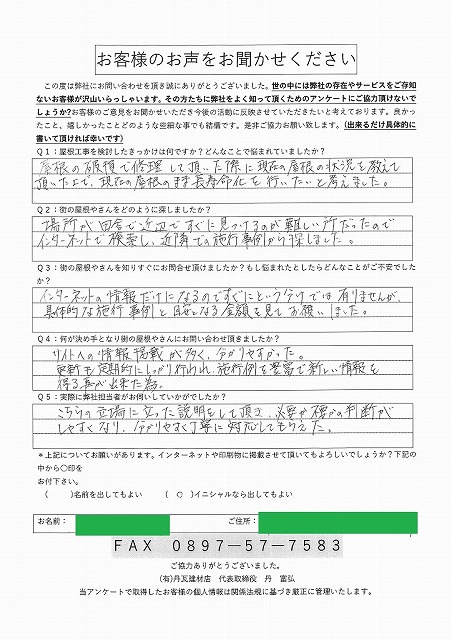 お客様のお声をお聞かせください
この度は弊社にお問い合わせを頂き誠にありがとうございました。世の中には弊社の存在やサービスをご存知
ないお客様が沢山いらっしゃいます。その方たちに弊社をよく知って頂くためのアンケートにご協力頂けないで
しょうか?お客様のご意見をお聞かせいただき今後の活動に反映させていただきたいと考えております。良かっ
たこと、嬉しかったことどのような些細な事でも結構です。是非ご協力お願い致します。(出来るだけ具体的に
書いて頂ければ幸いです)
Q1:屋根工事を検討したきっかけは何ですか?どんなことで悩まれていましたか?
屋根の破損で修理して頂いた際に現在の屋根の状況を教えて
頂いた上で、現在の屋根のまま長寿命化を行いたいと考えました。
Q2:街の屋根やさんをどのように探しましたか?
場所が田舎で近辺ですぐに見つけるのが難しい所だったので
インターネットで検索し、近隣での施行事例から探しました。
Q3:街の屋根やさんを知りすぐにお問合せ頂けましたか?もし悩まれたとしたらどんなことがご不安でした
か?
インターネットの情報だけになるのですぐにという分けでは有りませんが、
具体的な施行事例と目安となる金額を見てお願いしました。
Q4:何が決め手となり街の屋根やさんにお問い合わせ頂きましたか?
サイトへの情報掲載が多く、分かりやすかった。
更新も定期的にしっかり行われ、施行例も豊富で新しい情報を
得る事が出来た為。
Q5:実際に弊社担当者がお伺いしていかがでしたか?
こちらの立場に立った説明をして頂き、必要か否かの判断が
しやすくなり、分かりやすく丁寧に対応してもらえた。
*上記についてお願いがあります。インターネットや印刷物に掲載させて頂いてもよろしいでしょうか?下記の
中から〇印を
お付下さい。
( )名前を出してもよい ( ○ )イニシャルなら出してもよい
お名前: ご住所:
FAX 0897-57-7583
ご協力ありがとうございました。
(有)丹瓦建材店 代表取締役 丹 富弘
当アンケートで取得したお客様の個人情報は関係法規に基づき厳正に管理いたします。